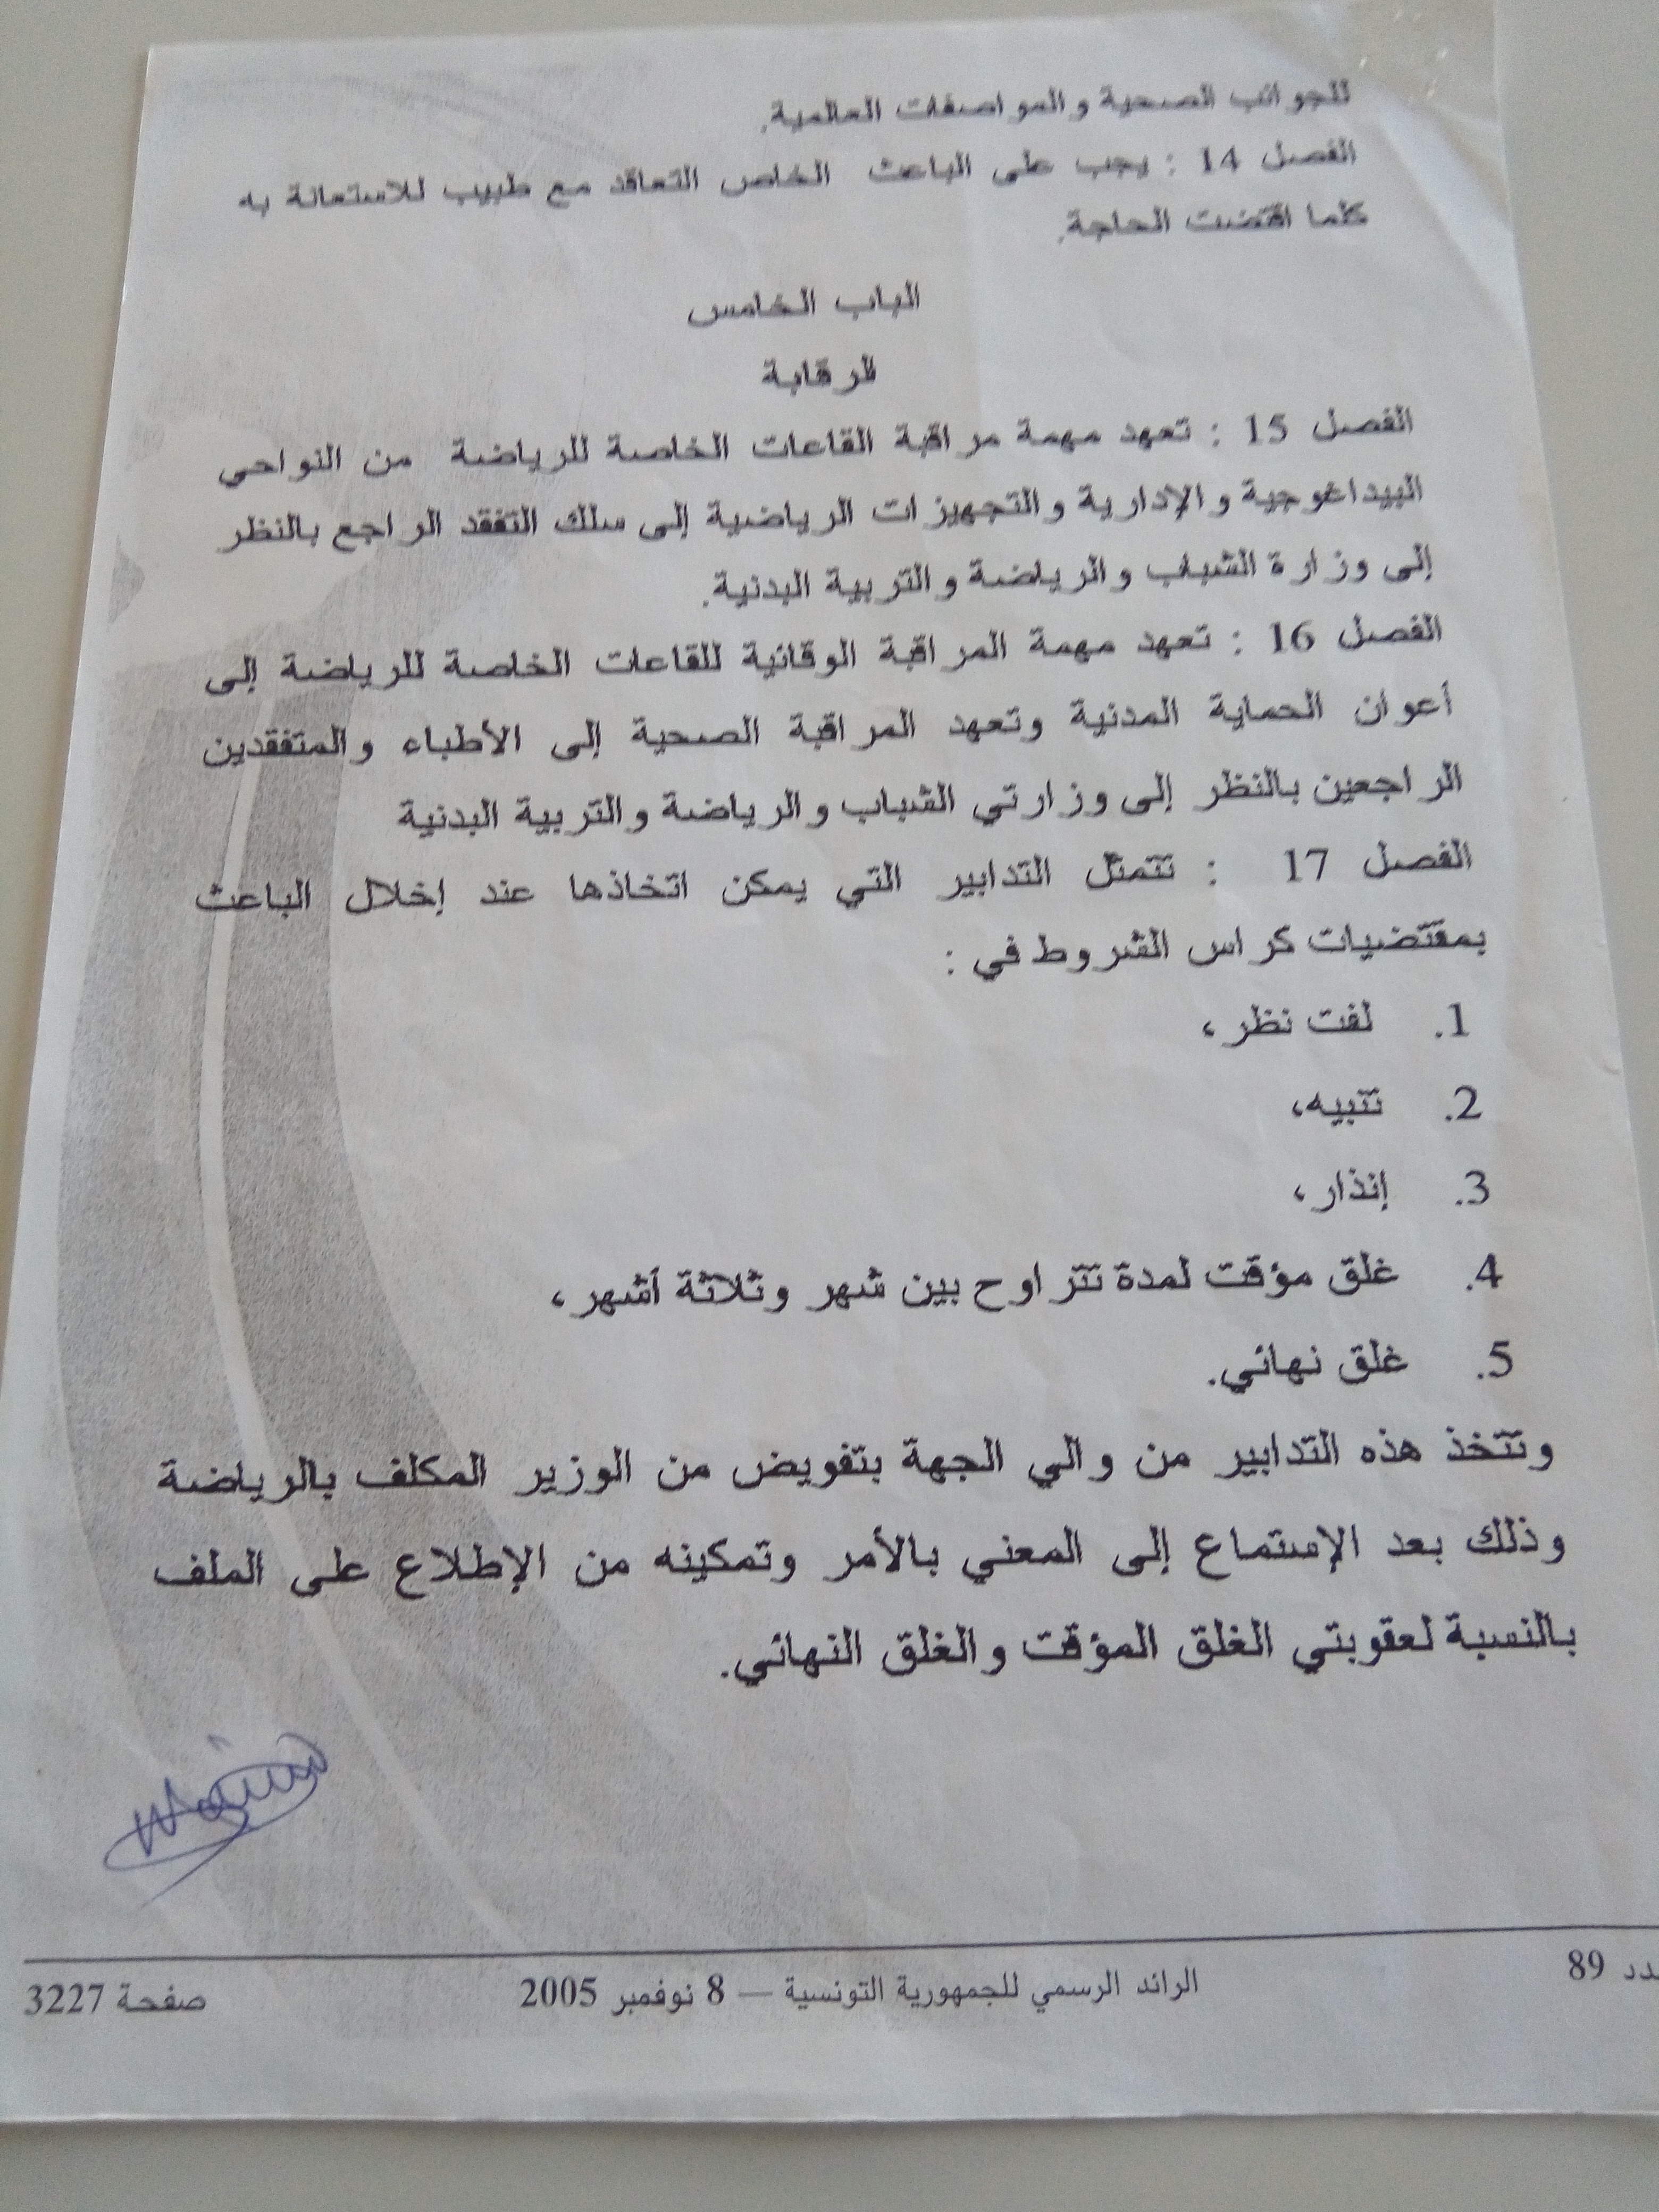 للجوانب الصحية والمواصفات العالمية.
الفصل 14 : يجب على الباعث الخاص التعاقد مع طبيب للاستعانة به
كلما اقتضت الحاجة.
الباب الخامس
المرقابة
الفصل 15 : تعهد مهمة مراقبة القاعات الخاصة للرياضة من النواحي
البيداغوجية والإدارية والتجهيزات الرياضية إلى سلك التفقد الراجع بالنظر
إلى وزارة الشباب والرياضة والتربية البدنية.
الفصل 16 : تعهد مهمة المراقبة الوقائية للقاعات الخاصة للرياضة إلى
أعوان الحماية المدنية وتعهد المراقبة الصحية إلى الأطباء والمتفقدين
الراجعين بالنظر إلى وزارتي الشباب والرياضة والتربية البدنية
الفصل 17 : تتمثل التدابير التي يمكن اتخاذها عند إخلال الباعث
بمقتضيات كراس الشروط في :
1. لفت نظر،
2. تنبيه،
3. إنذار،
4. غلق مؤقت لمدة تتراوح بين شهر وثلاثة أشهر،
5. غلق نهائي.
وتتخذ هذه التدابير من والي الجهة بتفويض من الوزير المكلف بالرياضة
وذلك بعد الإستماع إلى المعني بالأمر وتمكينه من الإطلاع على الملف
بالنسبة لعقوبتي الغلق المؤقت والغلق النهائي.
89 الرائد الرسمي للجمهورية التونسية — 8 نوفمبر 2005 صفحة 3227